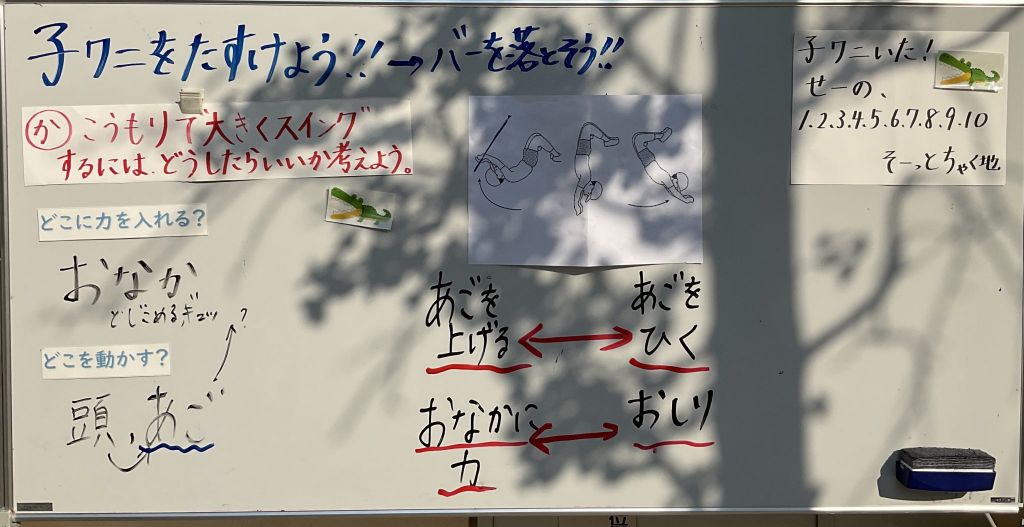 子ワニをたすけよう!!→バーを落とそう!!
か こうもりで大きくスイング
するには、どうしたらいいか考えよう。
どこに力を入れる?
おなか
とじこめるギュッ
?
どこを動かす?
頭、あご
あごを
上げる
あごを
ひく
おなかに
力
おしり
子ワニいた!
せーの、
1.2.3.4.5.6.7.8.9.10
そーっとちゃく地
位